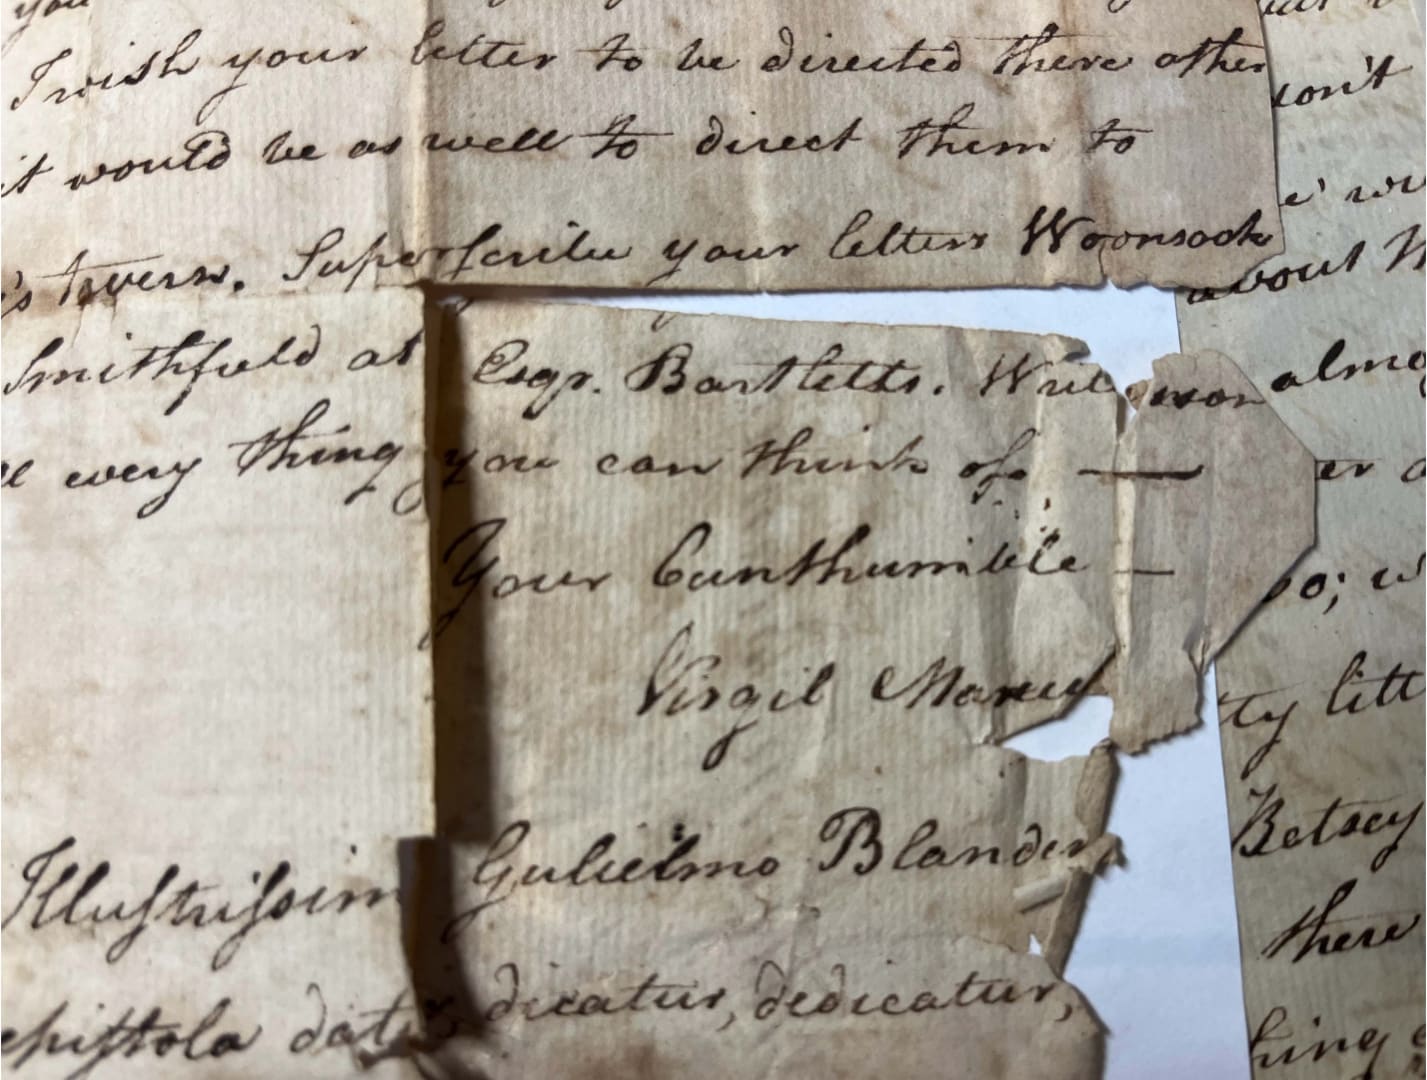 you
I wish your letter to be directed there other
it would be as well to direct them to
's tavern. Superscribe your letters Woonsock
Smithfield at Esqr. Bartletts. Write
every thing you can think of —
Your
Virgil
Illustrissim Gulielmo
epistola datur, dicatur, dedicatur,
don't
about
er
ty litt
Betsey
there
hing